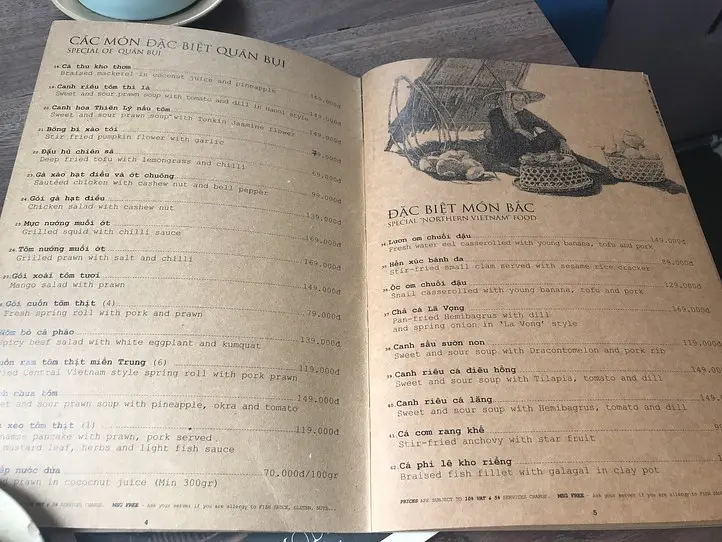 CÁC MÓN ĐẶC BIỆT QUÁN BỤI
SPECIAL OF QUÁN BỤI
Cá thu kho thơm
Braised mackerel in coconut juice and pineapple
Canh riêu tôm thì là 149.000đ
Sweet and sour prawn soup with tomato and dill in Hanoi style
Canh hoa Thiên Lý nấu tôm 149.000đ
Sweet and sour prawn soup with Tonkin Jasmine flower
Bông bí xào tỏi 149.000đ
Stir fried pumpkin flower with garlic
Đậu hủ chiên sả
Deep fried tofu with lemongrass and chilli 69.000đ
Gà xào hạt điều và ớt chuông
Sautéed chicken with cashew nut and bell pepper 99.000đ
Gỏi gà hạt điều
Chicken salad with cashew nut 139.000đ
Mực nướng muối ớt
Grilled squid with chilli sauce 169.000đ
Tôm nướng muối ớt
Grilled prawn with salt and chilli 169.000đ
Gỏi xoài tôm tươi
Mango salad with prawn 149.000đ
Gỏi cuốn tôm thịt (4)
Fresh spring roll with pork and prawn 79.000đ
bò cà pháo
picy beef salad with white eggplant and kumquat 139.000đ
ram tôm thịt miền Trung (6)
Central Vietnam style spring roll with pork prawn 119.000đ
chua tôm
and sour prawn soup with pineapple, okra and tomato 149.000đ
xeo tôm thịt (1) 119.000đ
pancake with prawn, pork served
mustard leaf, herbs and light fish sauce
nước dừa 70.000đ/100gr
prawn in coconut juice (Min 300gr)
VAT & 5% SERVICES CHARGE. MSG FREE - Ask your server if you are allergy to FISH SAUCE, GLUTEN, NUTS...
4
ĐẶC BIỆT MÓN BẮC
SPECIAL "NORTHERN VIETNAM" FOOD
34. Lươn om chuối đậu 149.000đ
Fresh water eel casseroled with young banana, tofu and pork
35. Hến xúc bánh đa 89.000đ
Stir-fried small clam served with sesame rice cracker
36. Ốc om chuối đậu 129.000đ
Snail casseroled with young banana, tofu and pork
37. Chả cá Lã Vọng 169.000đ
Pan-fried Hemibagrus with dill
and spring onion in 'La Vong' style
38. Canh sấu sườn non 119.000đ
Sweet and sour soup with Dracontomelon and pork rib
39. Canh riêu cá điêu hồng 149.00
Sweet and sour soup with Tilapia, tomato and dill
40. Canh riêu cá lăng 149.
Sweet and sour soup with Hemibagrus, tomato and dill
41. Cá cơm rang khế
Stir-fried anchovy with star fruit
42. Cá phi lê kho riềng
Braised fish fillet with galagal in clay pot
PRICES ARE SUBJECT TO 10% VAT & 5% SERVICES CHARGE. MSG FREE - Ask your server if you are allergy to FISH
5